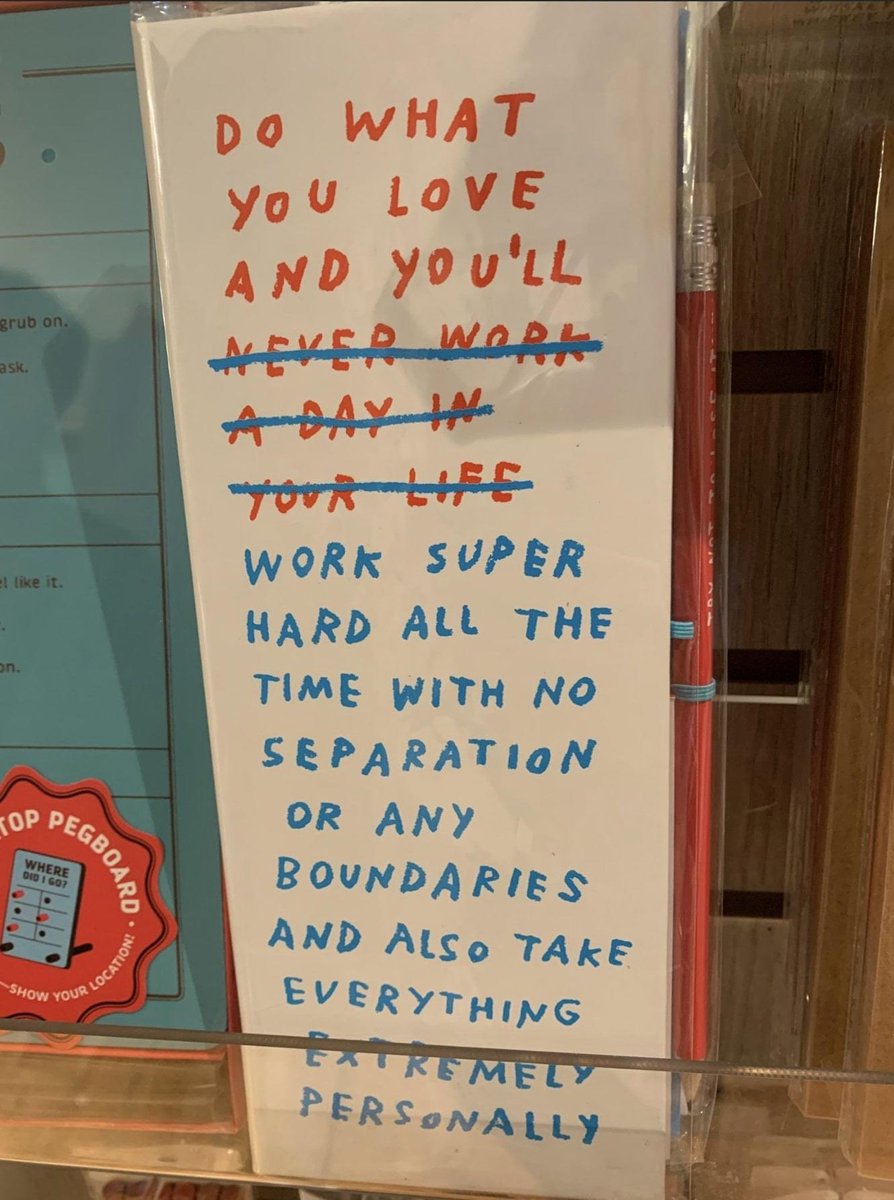 DO WHAT
YOU LOVE
AND YOU'LL
NEVER WORK
A DAY IN
YOUR LIFE
WORK SUPER
HARD ALL THE
TIME WITH NO
SEPARATION
OR ANY
BOUNDARIES
AND ALSO TAKE
EVERYTHING
EXTREMELY
PERSONALLY
grub on.
ask.
like it.
TOP PEGBOARD
WHERE
DID I GO?
SHOW YOUR LOCATION!
TRY NOT TO LOSE IT